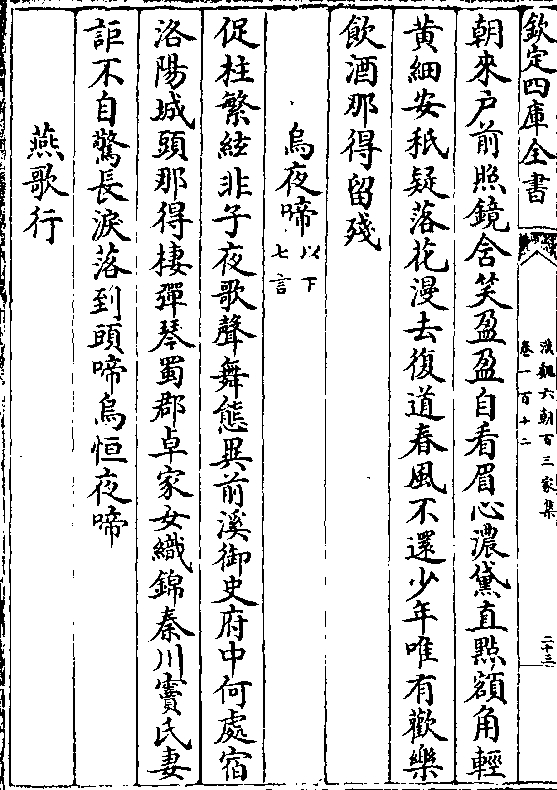 欽定四庫全書
漢魏六朝百三家集
卷一百十二
二十三
朝來戶前照鏡含笑盈盈自看眉心濃黛直點額角輕
黃細安秪疑落花漫去復道春風不還少年唯有歡樂
飲酒那得留殘
烏夜啼以下七言
促柱繁絃非子夜歌聲舞態異前溪御史府中何處宿
洛陽城頭那得棲彈琴蜀郡卓家女織錦秦川竇氏妻
詎不自驚長淚落到頭啼烏恒夜啼
燕歌行